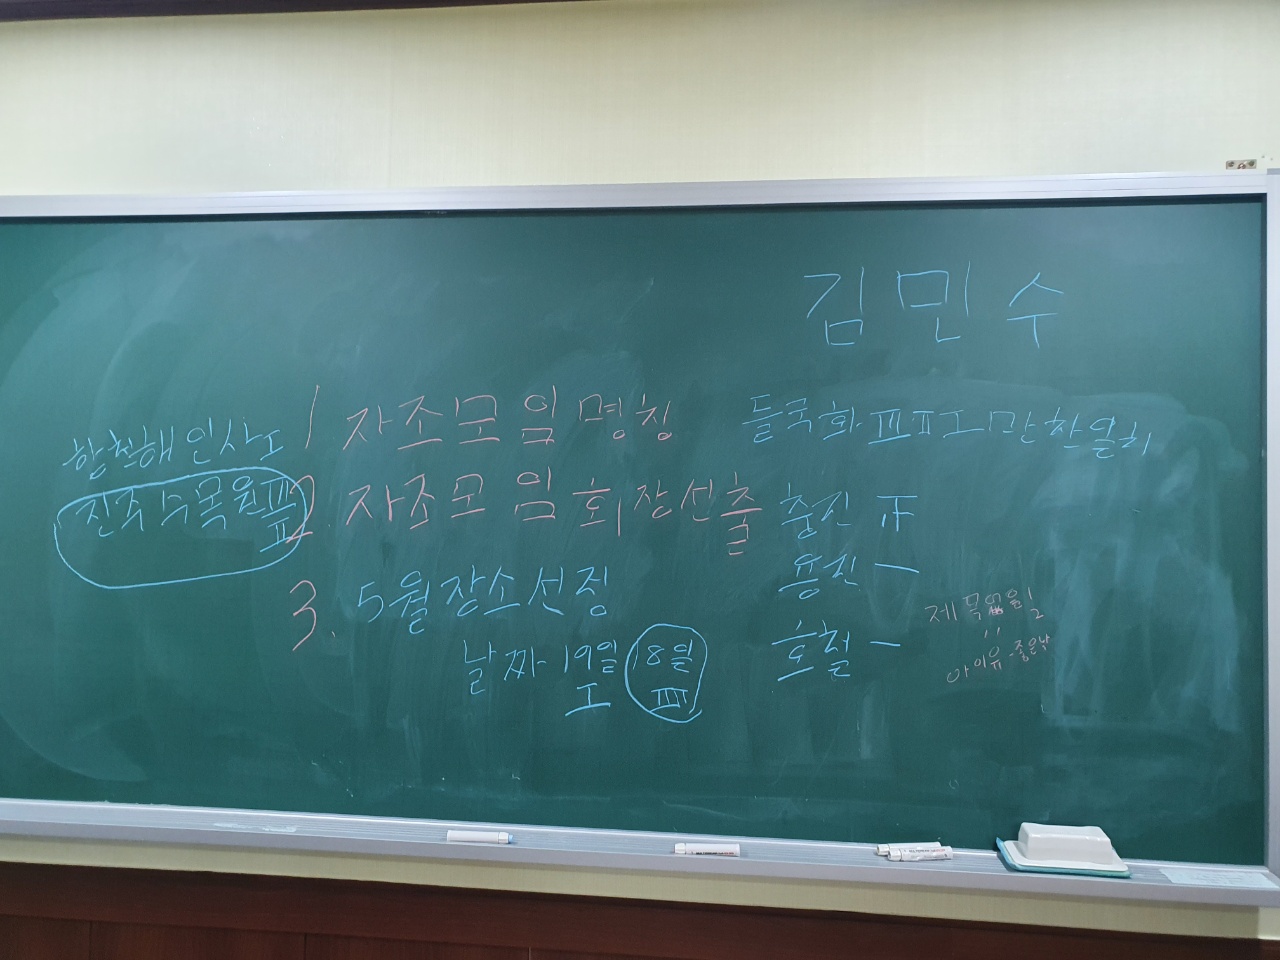 김민수
1 자조모임명칭
들국화 만학열기
합천해인사
진주수목원
2 자조모임회장선출
충진 正
용진 一
호철 一
3. 5월장소선정
날짜 19일 18일
제목없음 1 2
아이유 - 좋은날